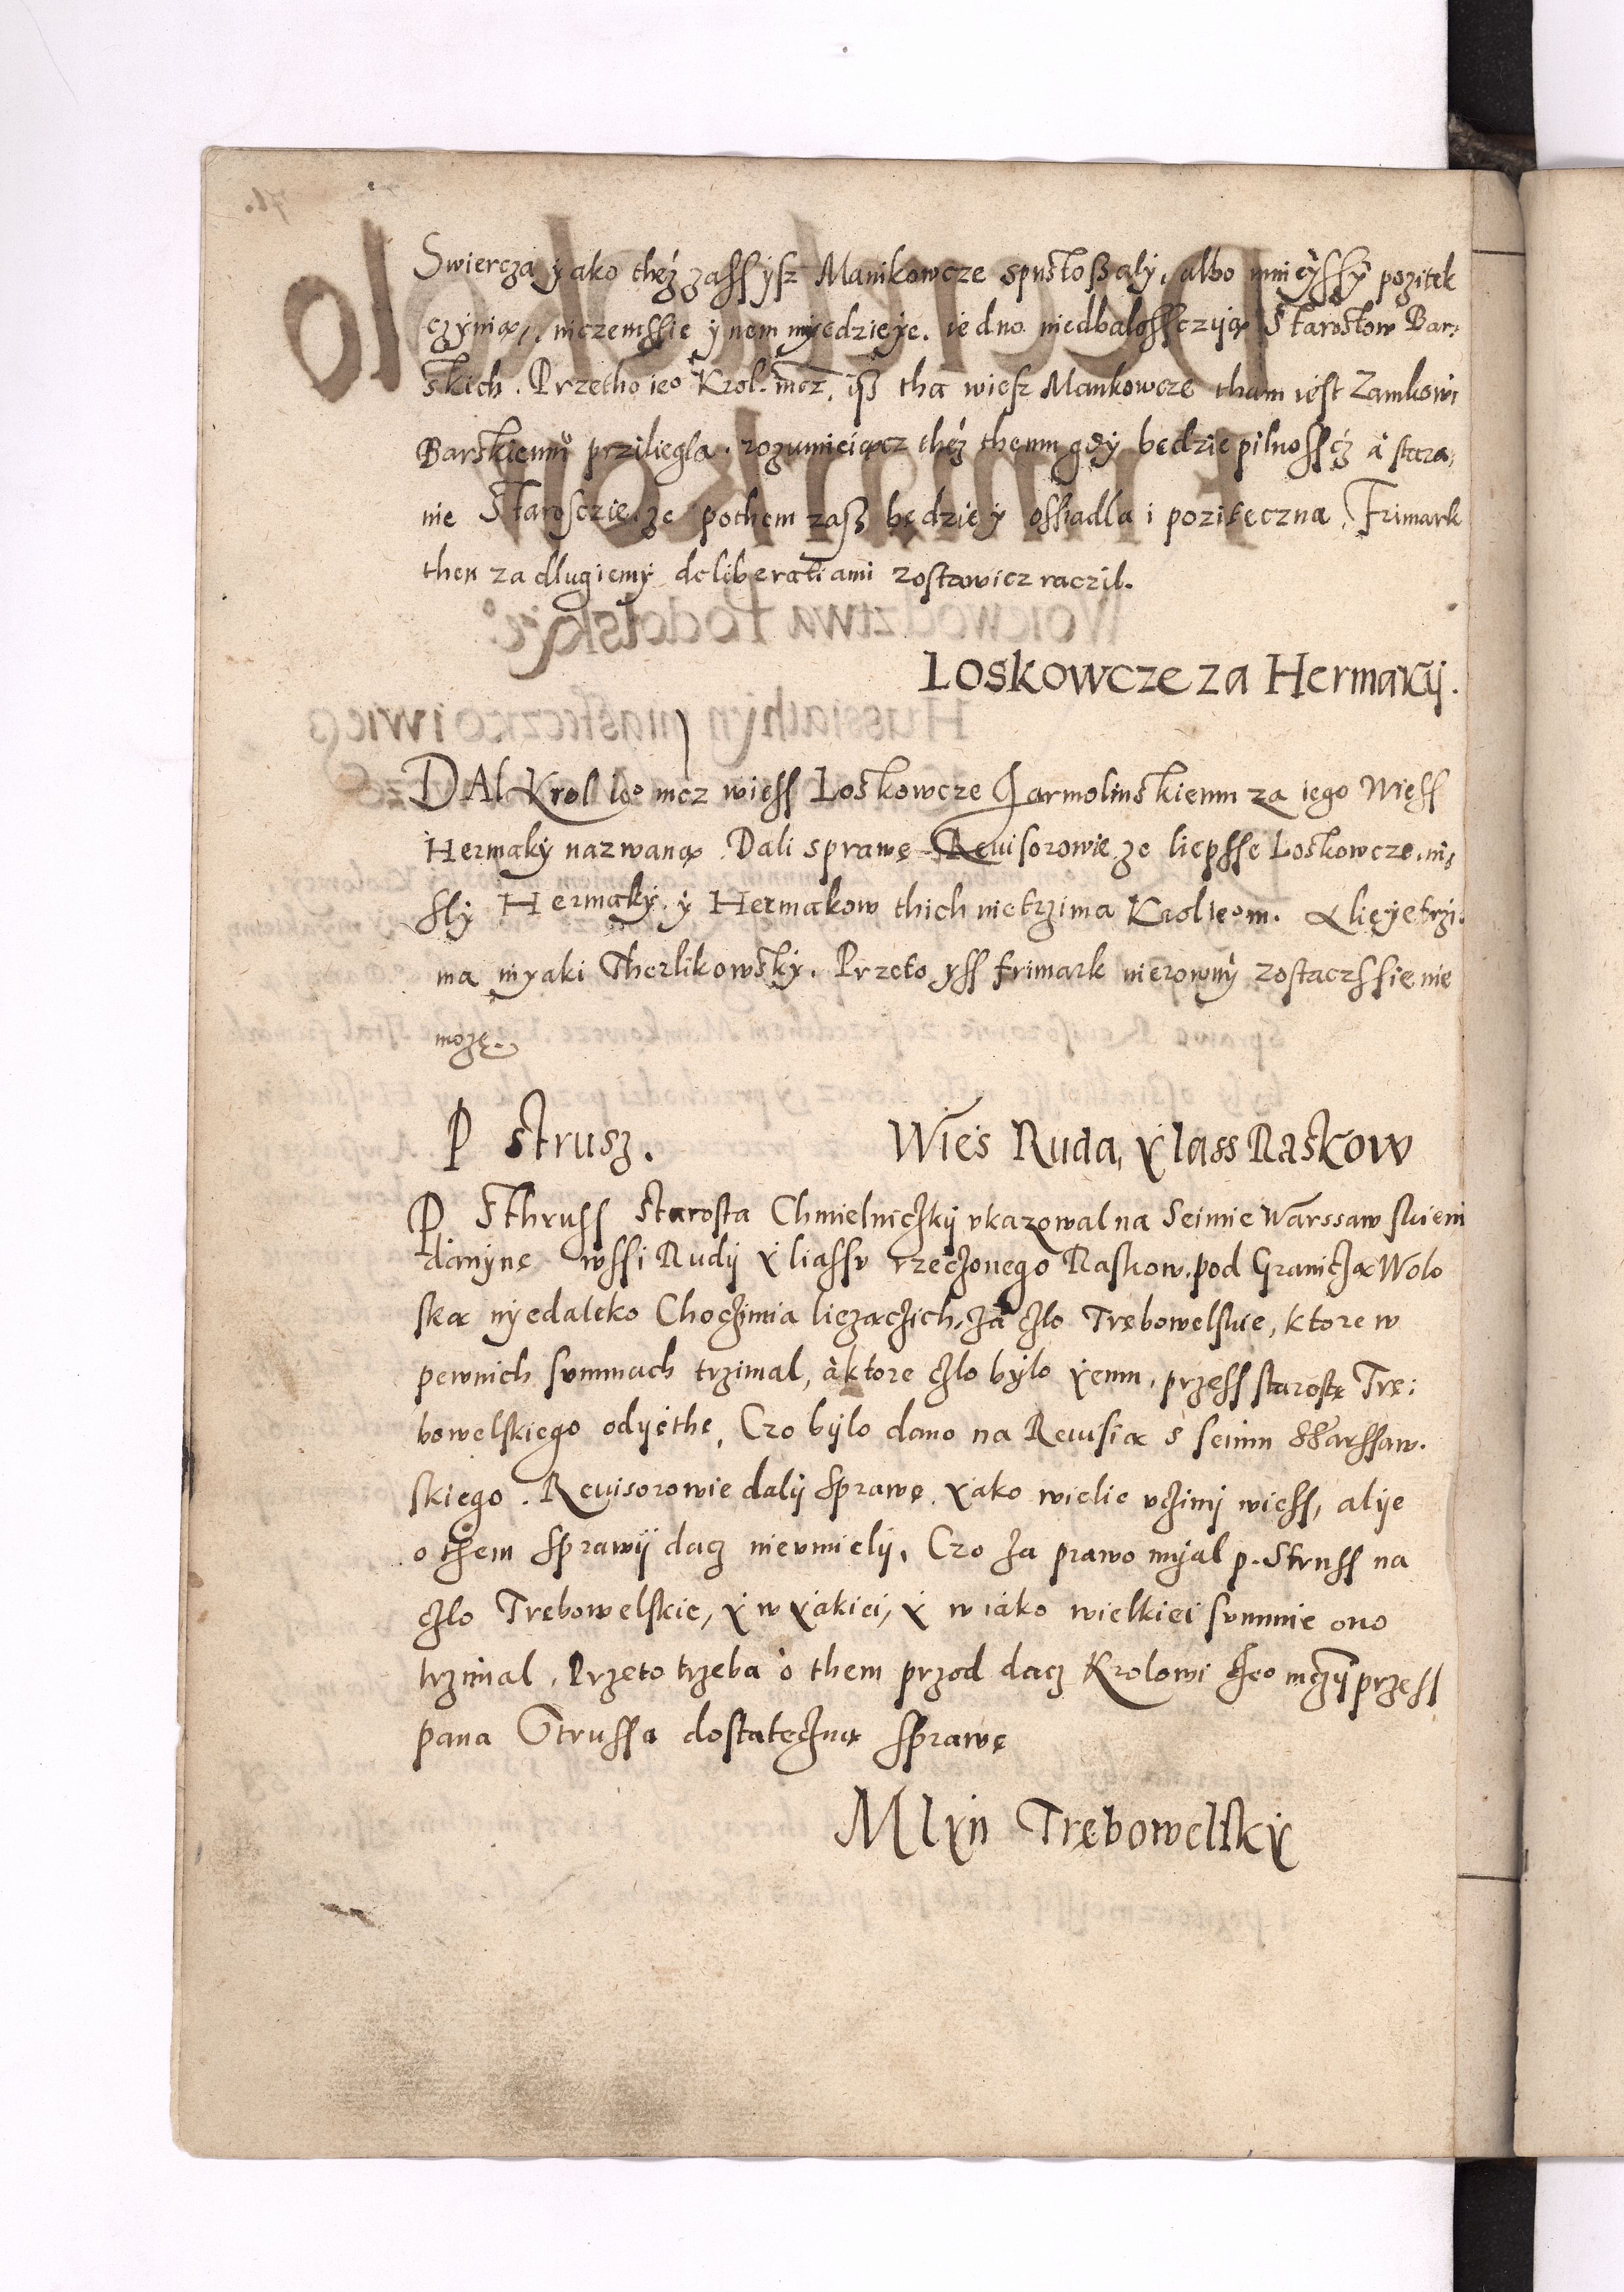 Swiercza yako theż zassysz Manikowcze spustoszaly, albo mnieyssy pozitek
czynią, niczemssie ynem niyedzieye. iedno niedbalossczyią Starostow Bar,
skich. Przetho ieo Krol. mcz. isz tha wiesz Mankowcze tham iest Zamkowi
Barskiemu przilegla. rozumieiącz theż themu gdy będzie pilnosscz á stara,
nie Starosczie. ze pothem zasz będzie y ossiadla i poziteczna, Frimark
then za dlugiemy deliberatiami zostawicz raczil.
Loskowcze za Hermaky.
DAl Krol ieo mcz wiess Loskowcze Jarmolinskiemu za iego Wiess
Hermaky nazwaną. Dali sprawę Reuisorowie ze liepsse Loskowcze. ni,
ssly Hermaky. y Hermakow thich nie trzima Krol ieo m. Alie ye trzi,
ma niyaki Therlikowsky. Przeto yss frimark nierowny zostaczssie nie
może.
P Strusz.
Wies Ruda, y lass Raskow
P Sthruss Starosta Chmielniczky vkazowal na Seimie Warssawskiem
danynę wssi Rudy y liassv rzeczonego Raskow. pod Granicżą Wolo
ską niyedaleko Choczimia liezączich, za czlo Trębowelskie, ktore w
pewnich summach trzimal, áktore czlo bylo yemu, przess starostę Trę:
bowelskiego odyęthe, Czo bylo dano na Reuisią s seimu Warssaw.
skiego. Reuisorowie daly sprawę, yako wielie vczini wiess, alye
o czem sprawy dacz nievmiely, Czo za prawo myal p. Struss na
czlo Trębowelskie, y w yakiei, y w iako wielkiei summie ono
trzimal, Przeto trzeba o them przod dacz Krolowi Jeo mczy przess
pana Strussa dostateczną sprawę
Mlyn Trębowelsky